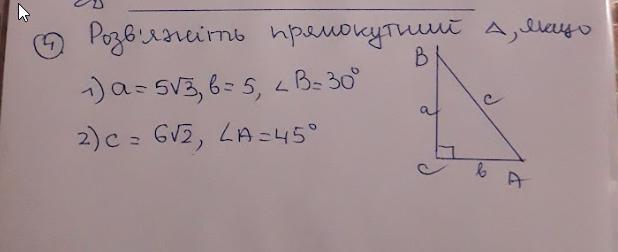 ④ Розв'яжіть прямокутний △, якщо
1) a = 5√3, b = 5, ∠B = 30°
2) c = 6√2, ∠A = 45°
B
a
c
C
b
A